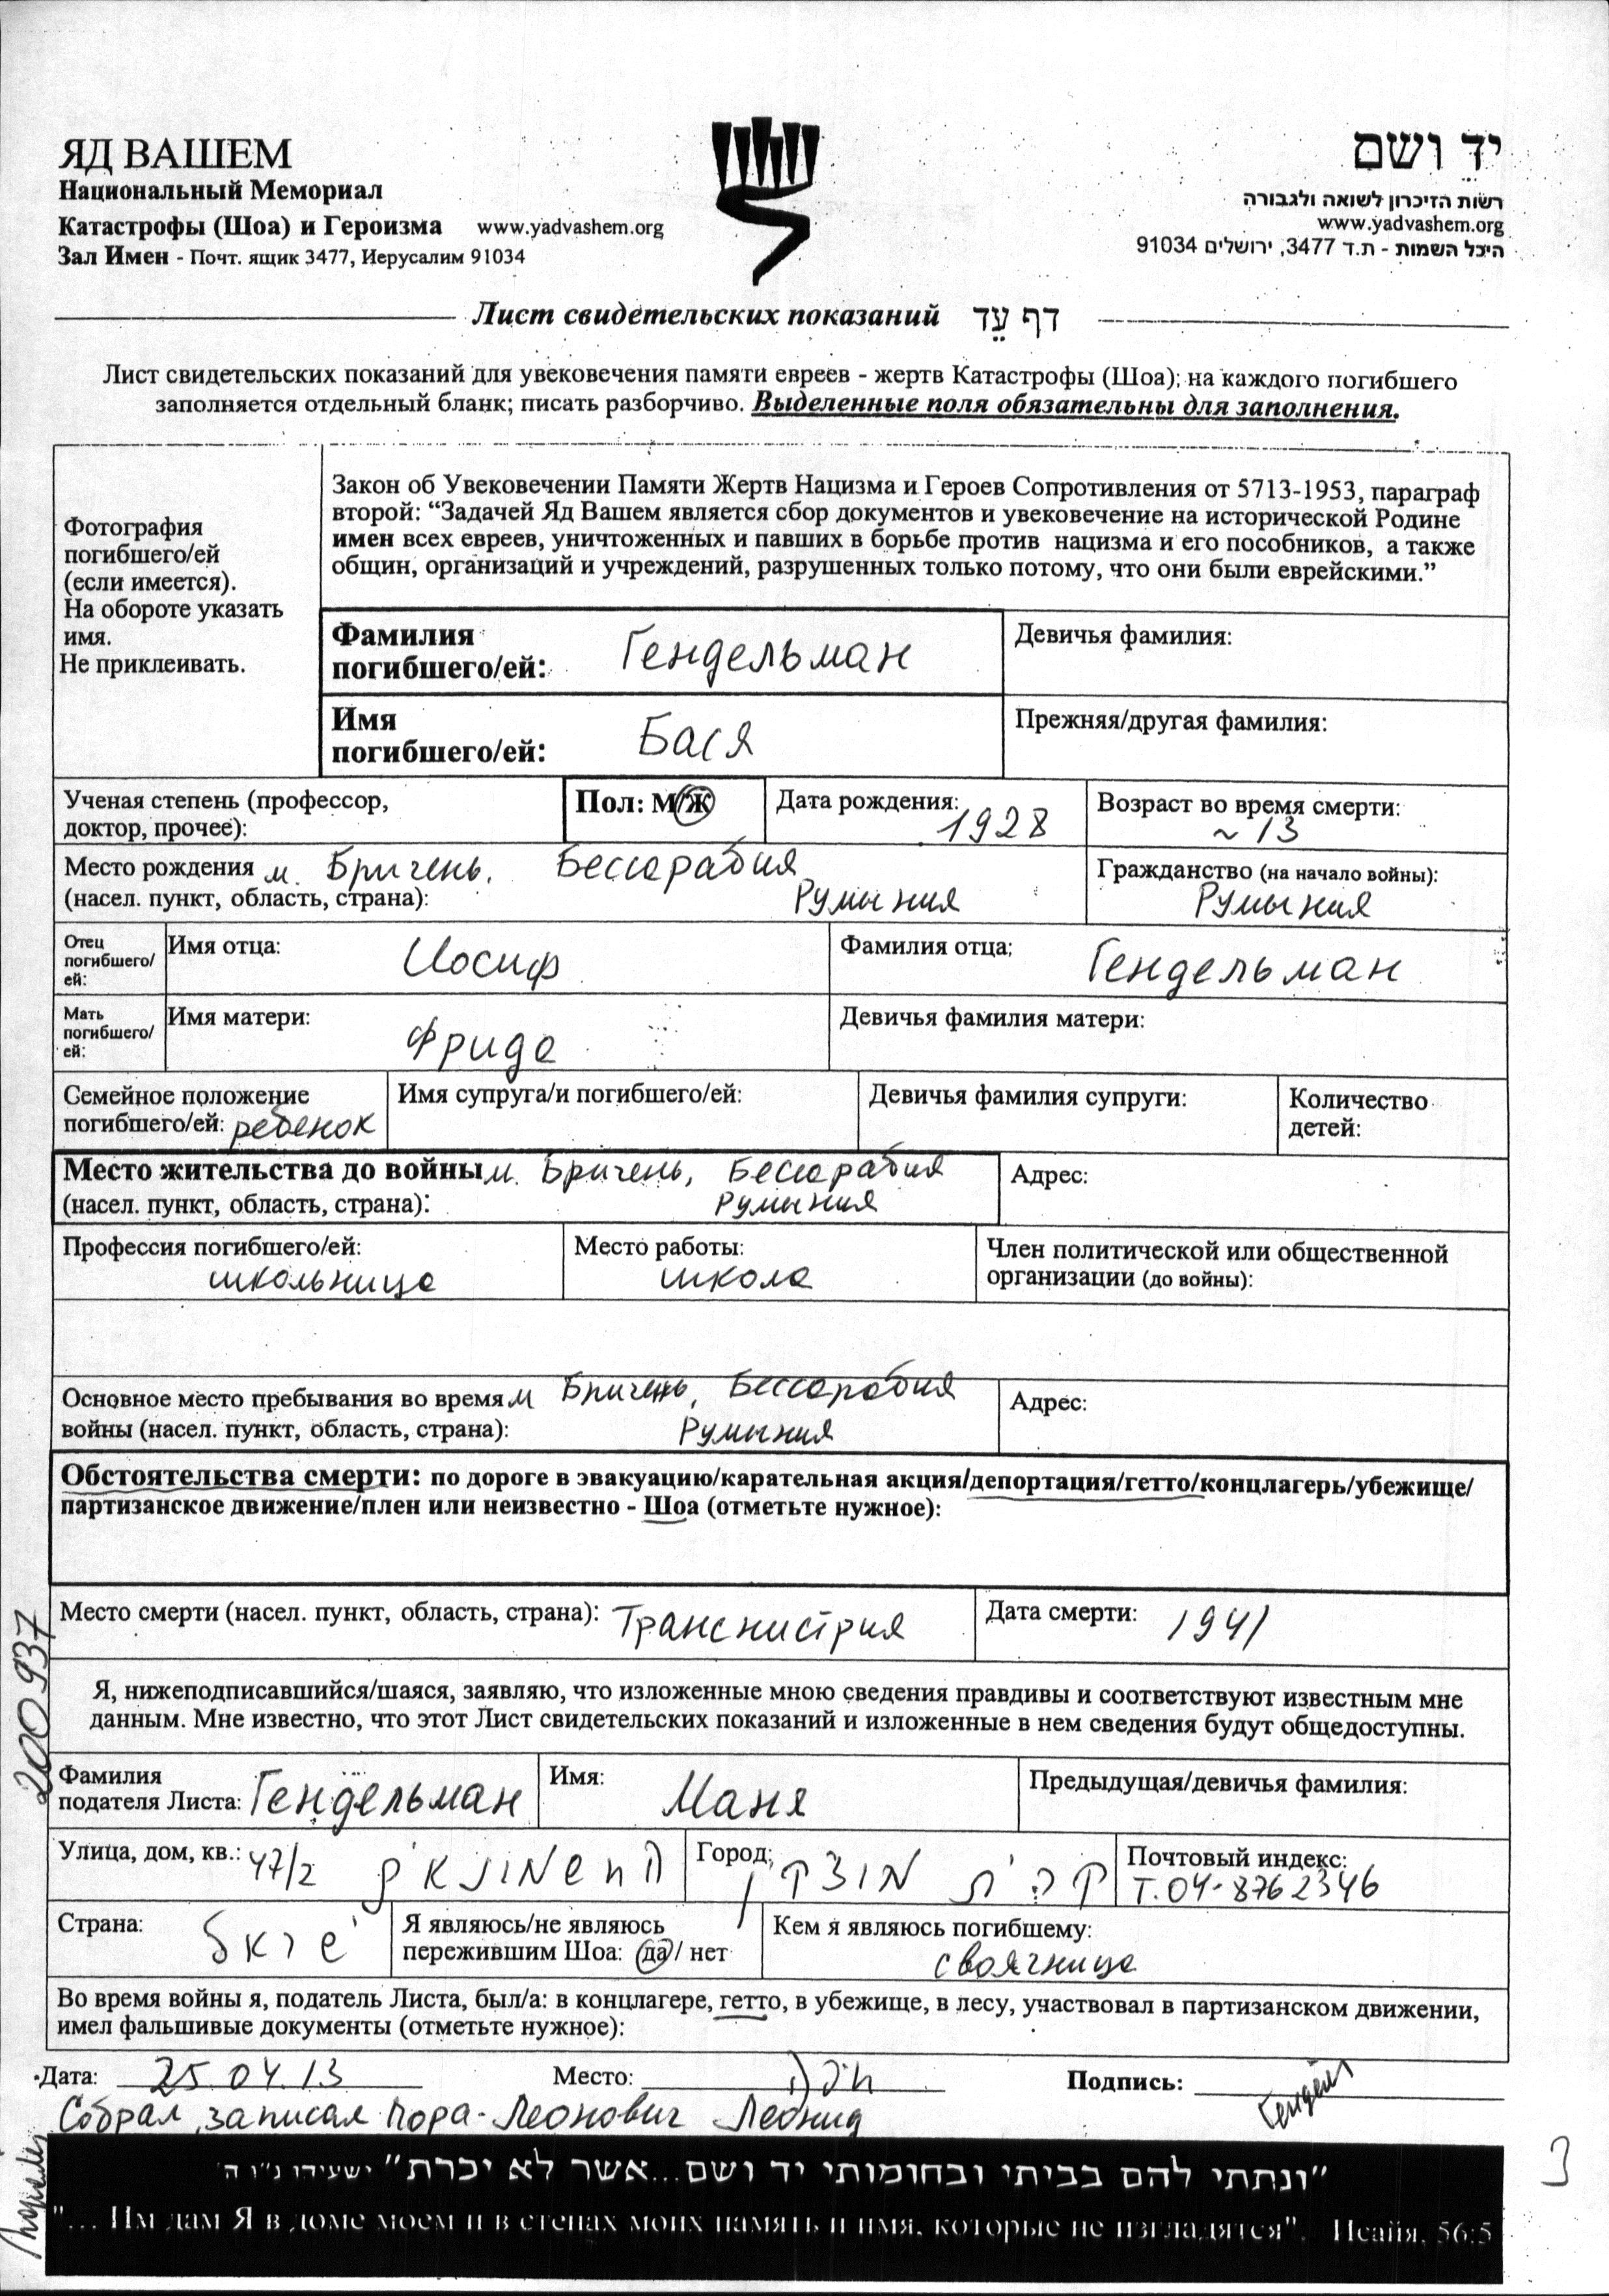 ЯД ВАШЕМ
Национальный Мемориал
Катастрофы (Шоа) и Героизма www.yadvashem.org
Зал Имен - Почт. ящик 3477, Иерусалим 91034
יד ושם
רשות הזיכרון לשואה ולגבורה
www.yadvashem.org
היכל השמות - ת.ד 3477, ירושלים 91034
Лист свидетельских показаний דף עד
Лист свидетельских показаний для увековечения памяти евреев - жертв Катастрофы (Шоа); на каждого погибшего
заполняется отдельный бланк; писать разборчиво. Выделенные поля обязательны для заполнения.
Фотография
погибшего/ей
(если имеется).
На обороте указать
имя.
Не приклеивать.
Закон об Увековечении Памяти Жертв Нацизма и Героев Сопротивления от 5713-1953, параграф
второй: “Задачей Яд Вашем является сбор документов и увековечение на исторической Родине
имен всех евреев, уничтоженных и павших в борьбе против нацизма и его пособников, а также
общин, организаций и учреждений, разрушенных только потому, что они были еврейскими.”
Фамилия
погибшего/ей: Гендельман
Девичья фамилия:
Имя
погибшего/ей: Бася
Прежняя/другая фамилия:
Ученая степень (профессор,
доктор, прочее):
Пол: М/Ж
Дата рождения: 1928
Возраст во время смерти:
~ 13
Место рождения м. Бричень, Бессарабия
(насел. пункт, область, страна): Румыния
Гражданство (на начало войны):
Румыния
Отец
погибшего/
ей:
Имя отца: Иосиф
Фамилия отца: Гендельман
Мать
погибшего/
ей:
Имя матери: Фрида
Девичья фамилия матери:
Семейное положение
погибшего/ей: ребенок
Имя супруга/и погибшего/ей:
Девичья фамилия супруги:
Количество
детей:
Место жительства до войны м. Бричень, Бессарабия
(насел. пункт, область, страна): Румыния
Адрес:
Профессия погибшего/ей:
школьница
Место работы:
школа
Член политической или общественной
организации (до войны):
Основное место пребывания во время м Бричень, Бессарабия
войны (насел. пункт, область, страна): Румыния
Адрес:
Обстоятельства смерти: по дороге в эвакуацию/карательная акция/депортация/гетто/концлагерь/убежище/
партизанское движение/плен или неизвестно - Шоа (отметьте нужное):
Место смерти (насел. пункт, область, страна): Транснистрия
Дата смерти: 1941
Я, нижеподписавшийся/шаяся, заявляю, что изложенные мною сведения правдивы и соответствуют известным мне
данным. Мне известно, что этот Лист свидетельских показаний и изложенные в нем сведения будут общедоступны.
200937
Фамилия
подателя Листа: Гендельман
Имя: Маня
Предыдущая/девичья фамилия:
Улица, дом, кв.: 47/2
Город: קרית מוצקין
Почтовый индекс:
Т. 04-8762346
Страна: ישראל
Я являюсь/не являюсь
пережившим Шоа: да / нет
Кем я являюсь погибшему:
своячница
Во время войны я, податель Листа, был/а: в концлагере, гетто, в убежище, в лесу, участвовал в партизанском движении,
имел фальшивые документы (отметьте нужное):
Дата: 25.04.13 Место: Подпись:
Собрал, записал Пора-Леонович Леонид
3
"ונתתי להם בביתי ובחומותי יד ושם...אשר לא יכרת" ישעיהו נ"ו ה'
"... Им дам Я в доме моем и в стенах моих память и имя, которые не изгладятся". Исайя, 56:5